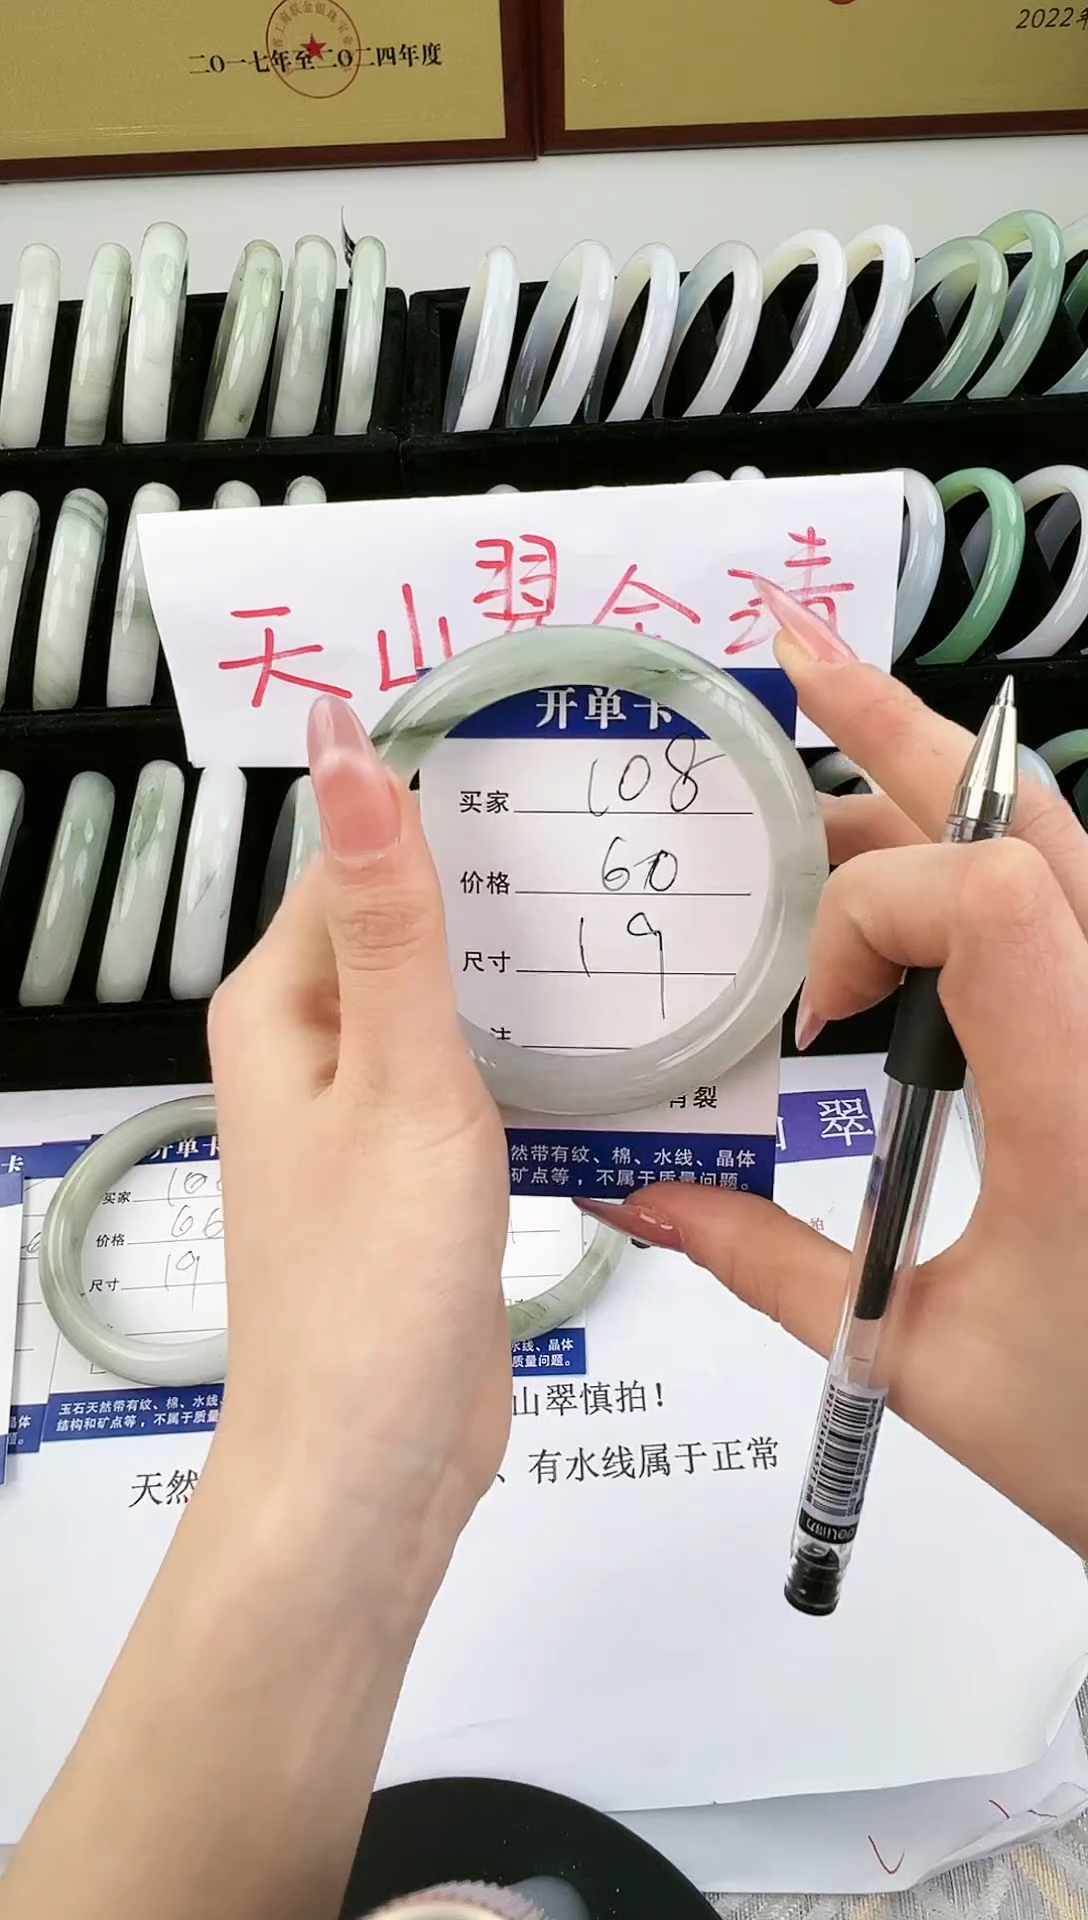 二〇一七年至二〇二四年度
2022年
天山翠
开单卡
买家 108
价格 60
尺寸 19
有裂
然带有纹、棉、水线、晶体
矿点等，不属于质量问题。
翠
开单卡
买家 10
价格 66
尺寸 19
玉石天然带有纹、棉、水线
结构和矿点等，不属于质量
水线、晶体
质量问题。
山翠慎拍！
天然
、有水线属于正常